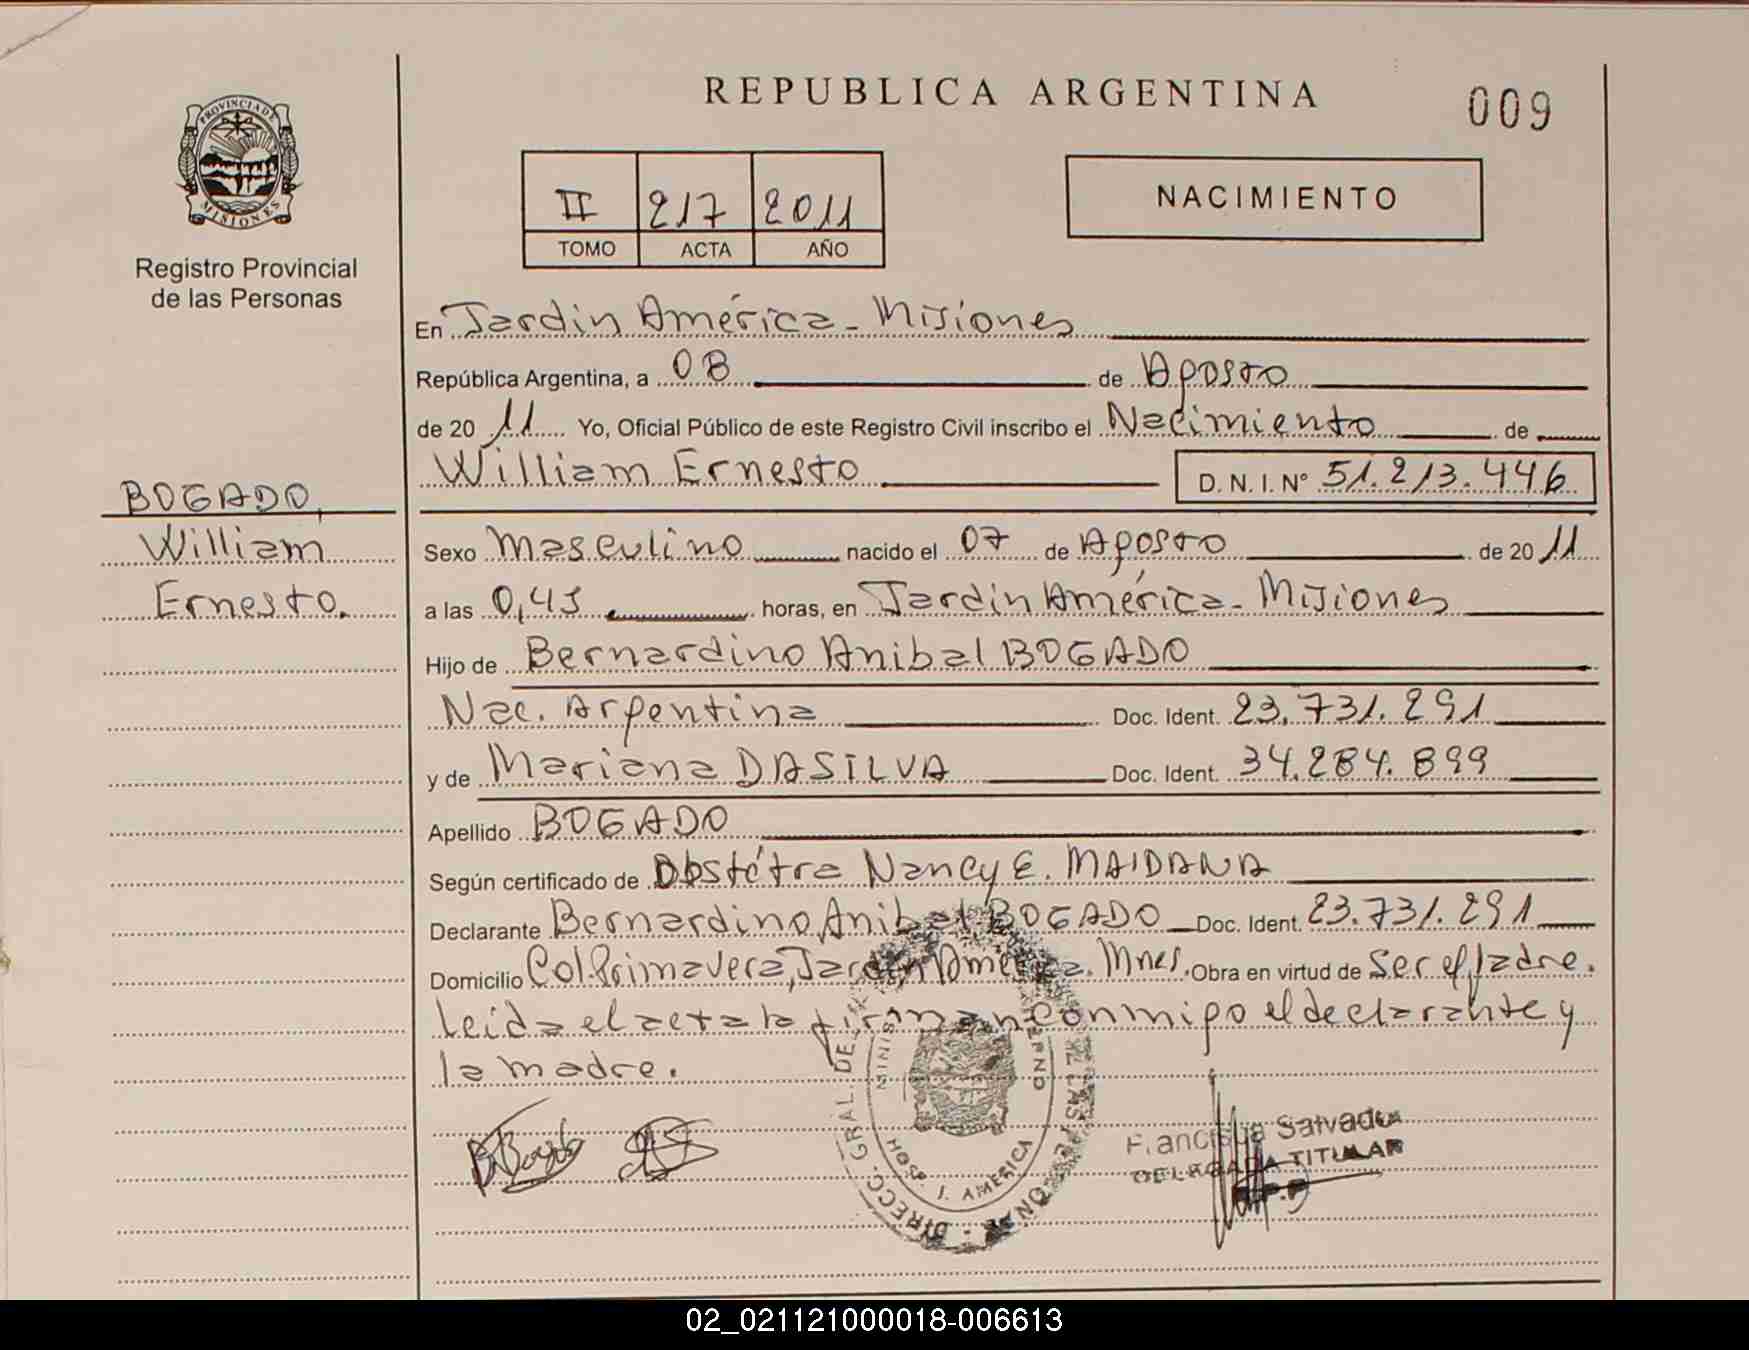 REPUBLICA ARGENTINA
009
PROVINCIA DE
MISIONES
Registro Provincial
de las Personas
II 217 2011
TOMO ACTA AÑO
NACIMIENTO
En Jardin América - Misiones
República Argentina, a 08 de Agosto
de 20 11 Yo, Oficial Público de este Registro Civil inscribo el Nacimiento de
William Ernesto D.N.I. Nº 51.213.446
BOGADO,
William
Ernesto.
Sexo Masculino nacido el 07 de Agosto de 20 11
a las 0,45 horas, en Jardin América - Misiones
Hijo de Bernardino Anibal BOGADO
Nac. Argentina Doc. Ident. 23.731.291
y de Mariana DASILVA Doc. Ident. 34.284.899
Apellido BOGADO
Según certificado de Obstétra Nancy E. MAIDANA
Declarante Bernardino Anibal BOGADO Doc. Ident. 23.731.291
Domicilio Col. Primavera, Jardin América. Mnes. Obra en virtud de ser el padre.
Leida el acta la firman conmigo el declarante y
la madre.
DIRECC. GRAL. DEL
MINIS
HOSP J. AMERICA
Salvador
DELEGADA TITULAR
02_021121000018-006613